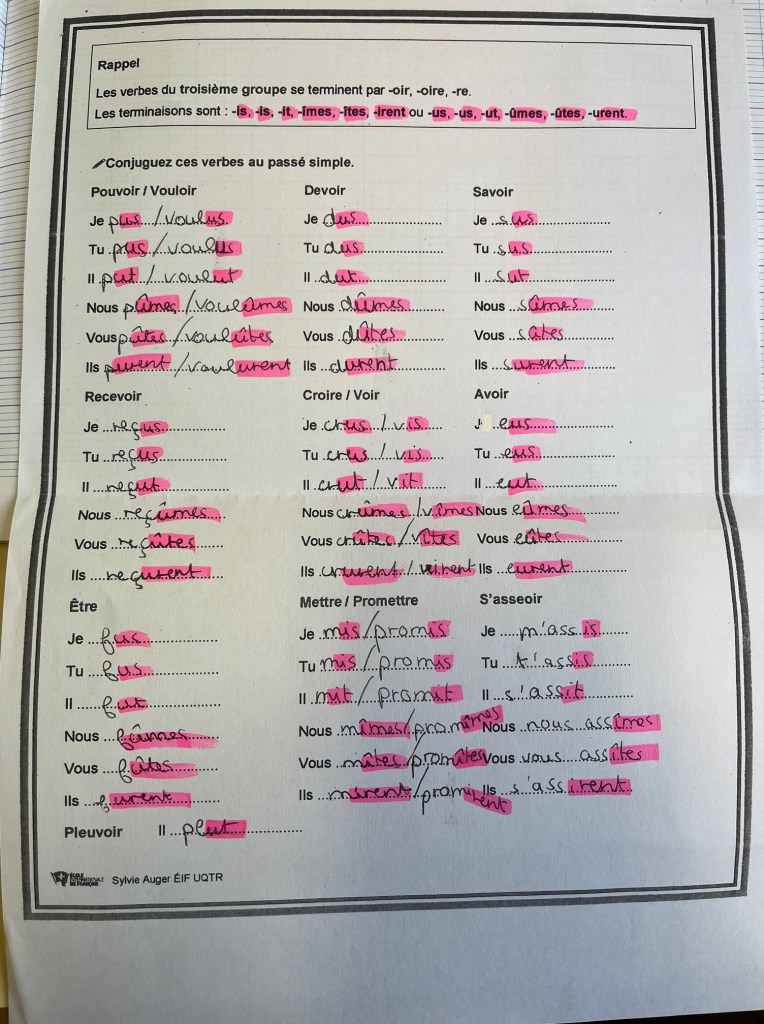 Rappel
Les verbes du troisième groupe se terminent par -oir, -oire, -re.
Les terminaisons sont : -is, -is, -it, -îmes, -îtes, -irent ou -us, -us, -ut, -ûmes, -ûtes, -urent.
Conjuguez ces verbes au passé simple.
Pouvoir / Vouloir
Je pus / voulus
Tu pus / voulus
Il put / voulut
Nous pûmes / voulûmes
Vous pûtes / voulûtes
Ils purent / voulurent
Devoir
Je dus
Tu dus
Il dut
Nous dûmes
Vous dûtes
Ils durent
Savoir
Je sus
Tu sus
Il sut
Nous sûmes
Vous sûtes
Ils surent
Recevoir
Je reçus
Tu reçus
Il reçut
Nous reçûmes
Vous reçûtes
Ils reçurent
Croire / Voir
Je crus / vis
Tu crus / vis
Il crut / vit
Nous crûmes / vîmes
Vous crûtes / vîtes
Ils crurent / virent
Avoir
J' eus
Tu eus
Il eut
Nous eûmes
Vous eûtes
Ils eurent
Être
Je fus
Tu fus
Il fut
Nous fûmes
Vous fûtes
Ils furent
Mettre / Promettre
Je mis / promis
Tu mis / promis
Il mit / promit
Nous mîmes / promîmes
Vous mîtes / promîtes
Ils mirent / promirent
S'asseoir
Je m'assis
Tu t'assis
Il s'assit
Nous nous assîmes
Vous vous assîtes
Ils s'assirent
Pleuvoir Il plut
ÉCOLE
INTERNATIONALE
DE FRANÇAIS
Sylvie Auger ÉIF UQTR